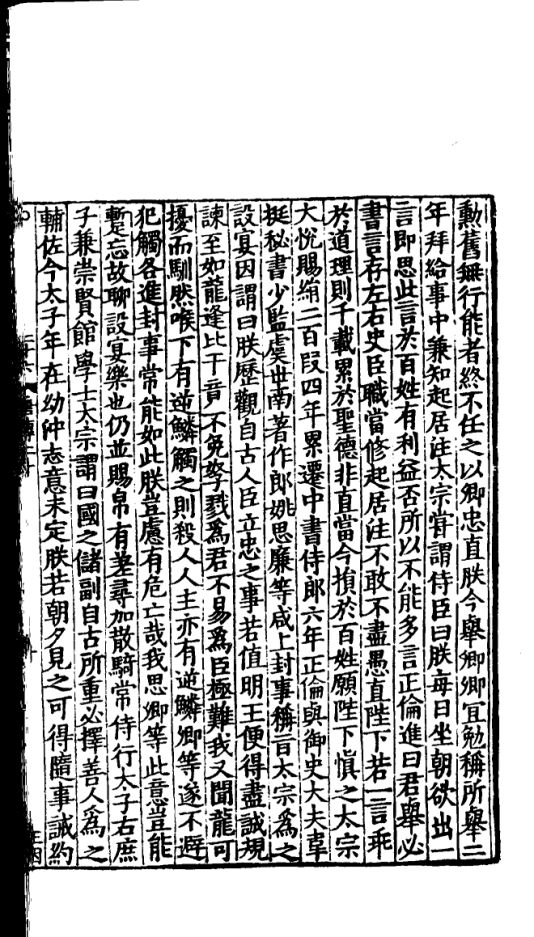 勲舊無行能者終不任之以卿忠直朕今舉卿卿宜勉稱所舉二
年拜給事中兼知起居注太宗甞謂侍臣曰朕每日坐朝欲出一
言即思此言於百姓有利益否所以不能多言正倫進曰君舉必
書言存左右史臣職當修起居注不敢不盡愚直陛下若一言乖
於道理則千載累於聖德非直當今損於百姓願陛下慎之太宗
大悅賜絹二百段四年累遷中書侍郎六年正倫與御史大夫韋
挺秘書少監虞世南著作郎姚思廉等咸上封事稱旨太宗為之
設宴因謂曰朕歷觀自古人臣立忠之事若值明王便得盡誠規
諫至如龍逢比干音不免孥戮為君不易為臣極難我又聞龍可
擾而馴然喉下有逆鱗觸之則殺人人主亦有逆鱗卿等遂不避
犯觸各進封事常能如此朕豈慮有危亡哉我思卿等此意豈能
暫忘故聊設宴樂也仍並賜帛有差尋加散騎常侍行太子右庶
子兼崇賢館學士太宗謂曰國之儲副自古所重必擇善人為之
輔佐今太子年在幼沖志意未定朕若朝夕見之可得隨事誡約